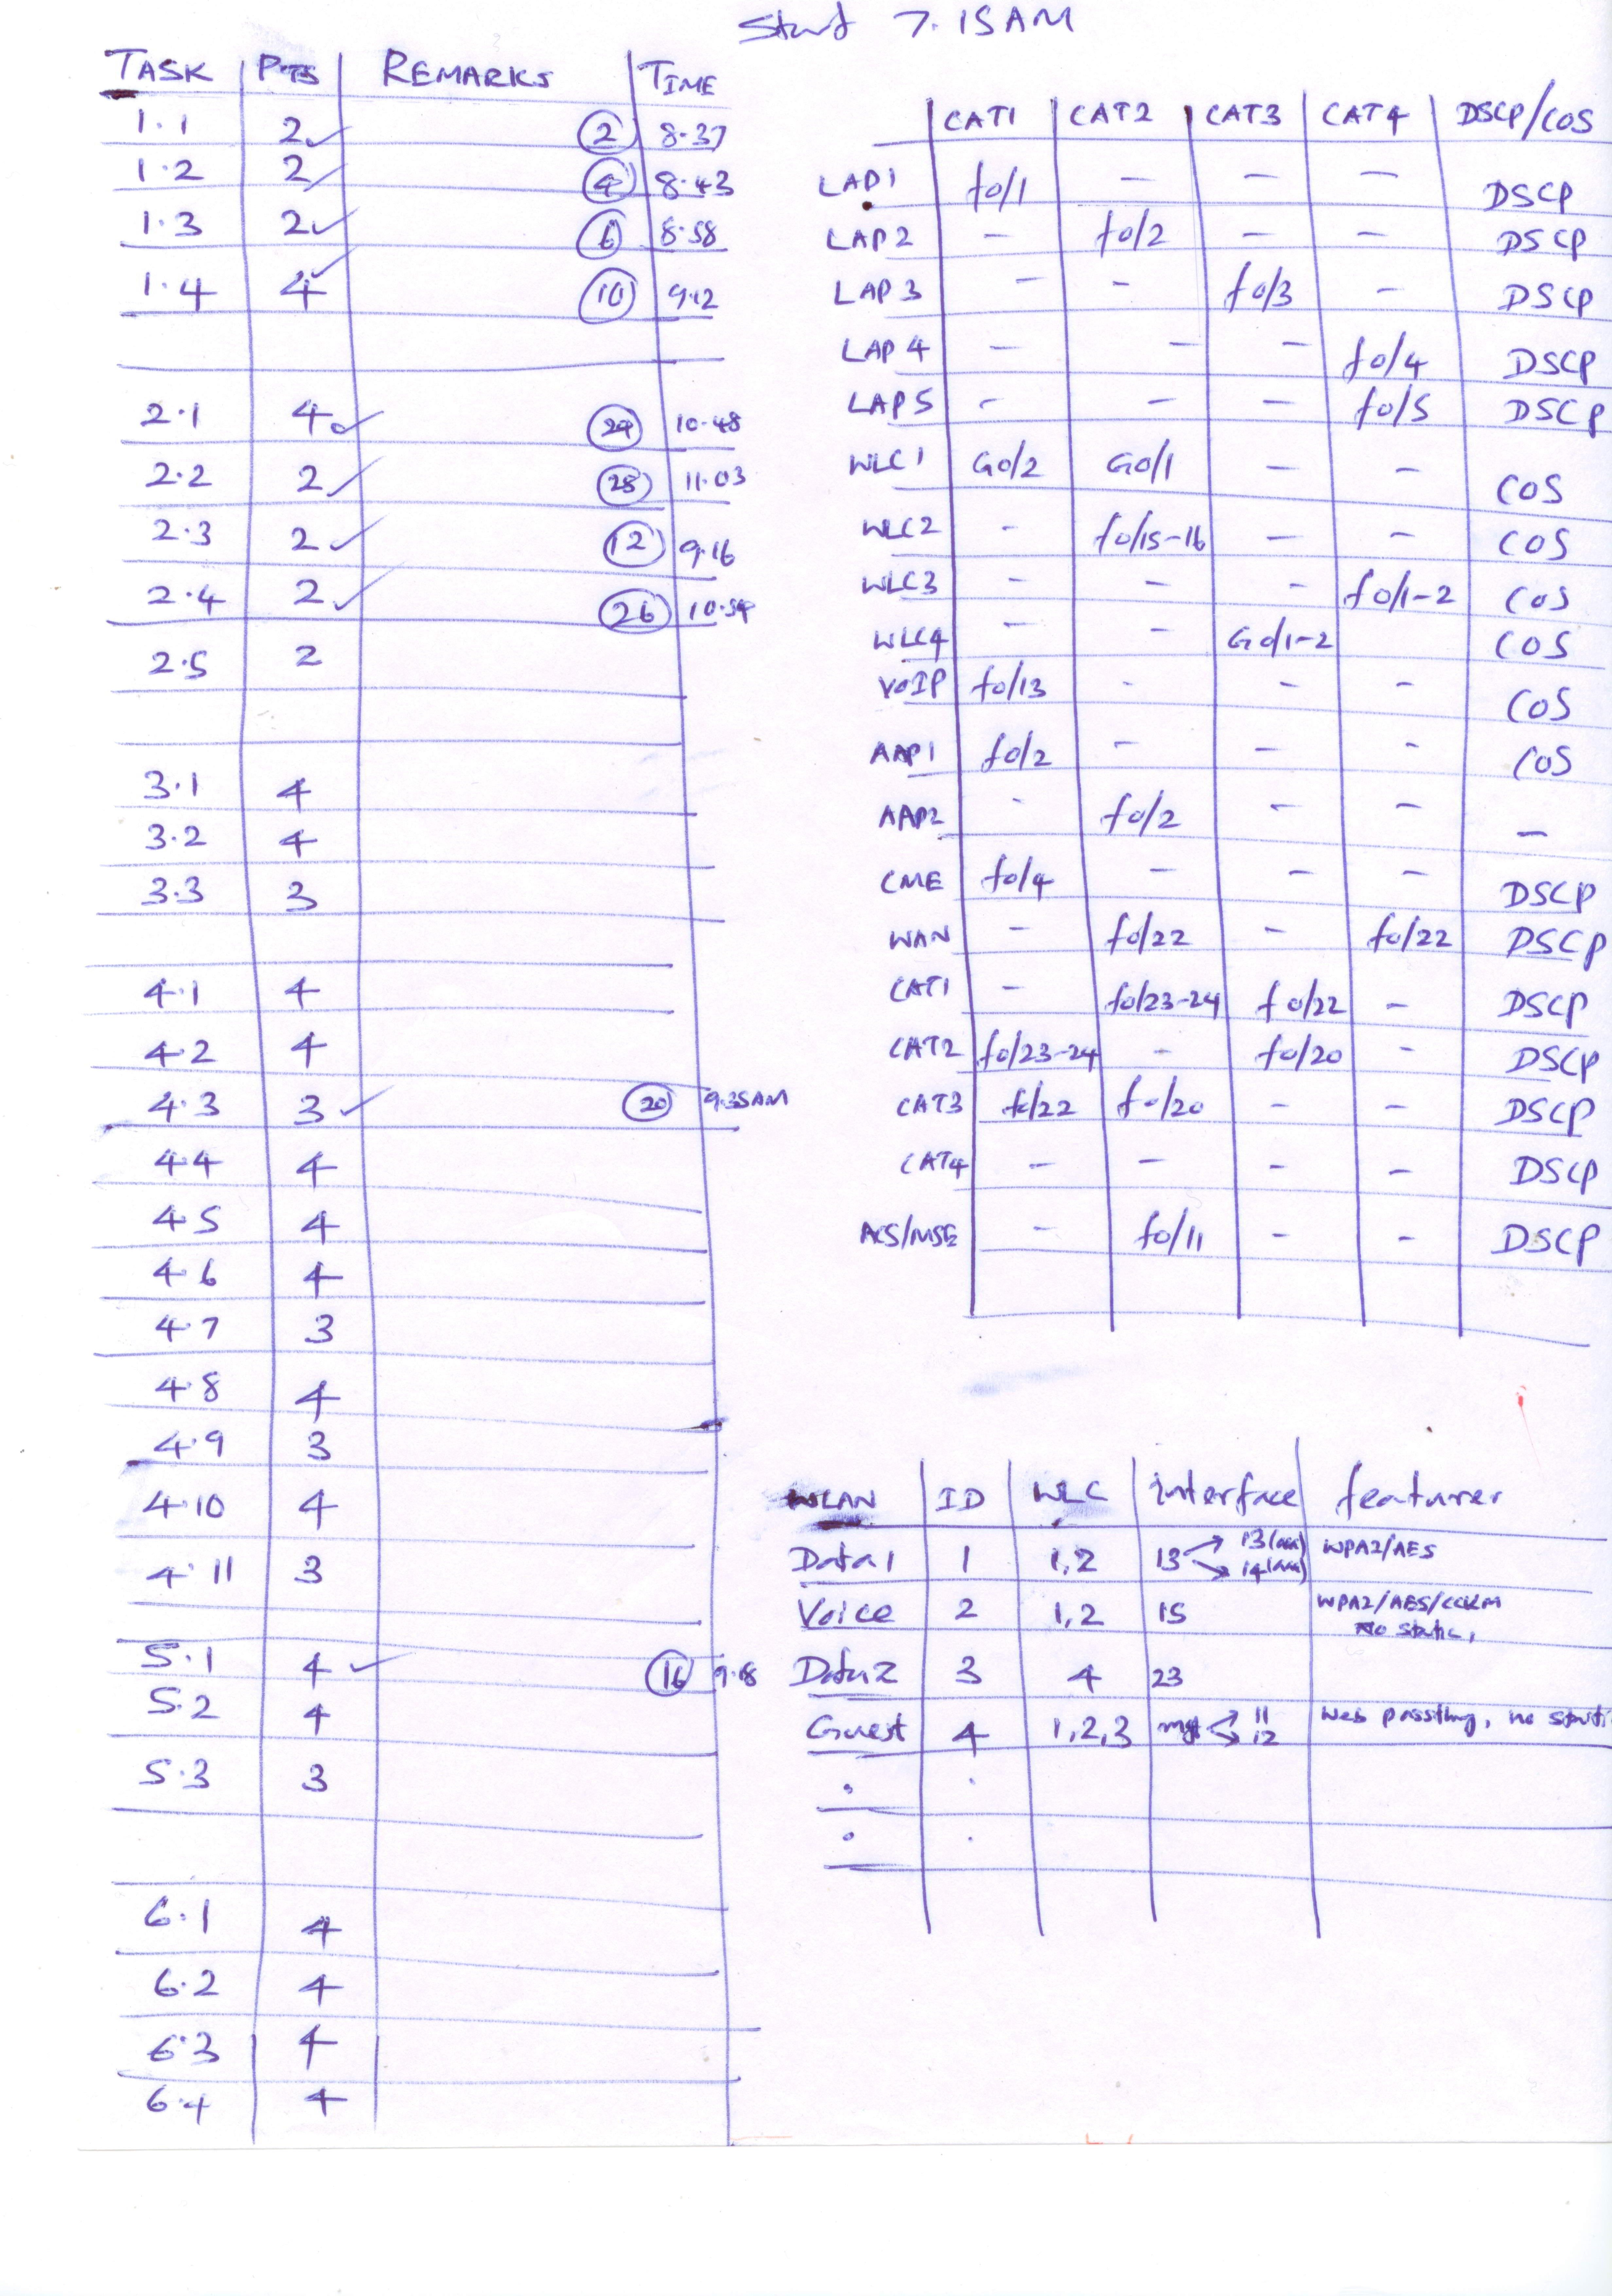 Start 7.15AM
TASK PTS REMARKS TIME
1.1 2✓ 2 8.37
1.2 2✓ 4 8.43
1.3 2✓ 6 8.58
1.4 4✓ 10 9.12
2.1 4✓ 24 10.48
2.2 2✓ 28 11.03
2.3 2✓ 12 9.16
2.4 2✓ 26 10.54
2.5 2
3.1 4
3.2 4
3.3 3
4.1 4
4.2 4
4.3 3✓ 20 9.35AM
4.4 4
4.5 4
4.6 4
4.7 3
4.8 4
4.9 3
4.10 4
4.11 3
5.1 4✓ 16 9.18
5.2 4
5.3 3
6.1 4
6.2 4
6.3 4
6.4 4
CAT1 CAT2 CAT3 CAT4 DSCP/COS
LAP1 f0/1 - - - DSCP
LAP2 - f0/2 - - DSCP
LAP3 - - f0/3 - DSCP
LAP4 - - - f0/4 DSCP
LAP5 - - - f0/5 DSCP
WLC1 G0/2 G0/1 - - COS
WLC2 - f0/15-16 - - COS
WLC3 - - - f0/1-2 COS
WLC4 - - G0/1-2 COS
VOIP f0/13 - - - COS
AAP1 f0/2 - - - COS
AAP2 - f0/2 - - -
CME f0/4 - - - DSCP
WAN - f0/22 - f0/22 DSCP
CAT1 - f0/23-24 f0/22 - DSCP
CAT2 f0/23-24 - f0/20 - DSCP
CAT3 f0/22 f0/20 - - DSCP
CAT4 - - - - DSCP
ACS/MSE - f0/11 - - DSCP
WLAN ID WLC interface features
Data1 1 1,2 13 → 13 → 14 WPA2/AES
Voice 2 1,2 15 WPA2/AES/CCKM
No static,
Data2 3 4 23
Guest 4 1,2,3 mgt → 11 → 12 web passthru, no
. .
. .